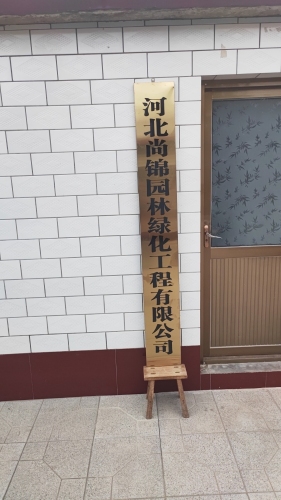 河北尚锦园林绿化工程有限公司